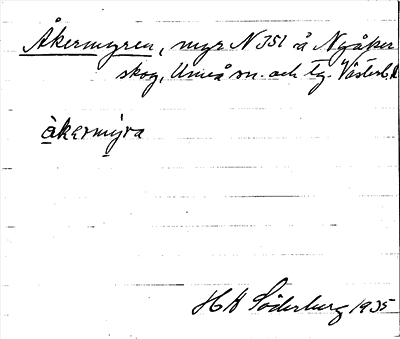 Åkermyren, myr N 351 å Nyåker
skog, Umeå sn. och tg. Västerb.
åkermýra
H H Söderberg 1935